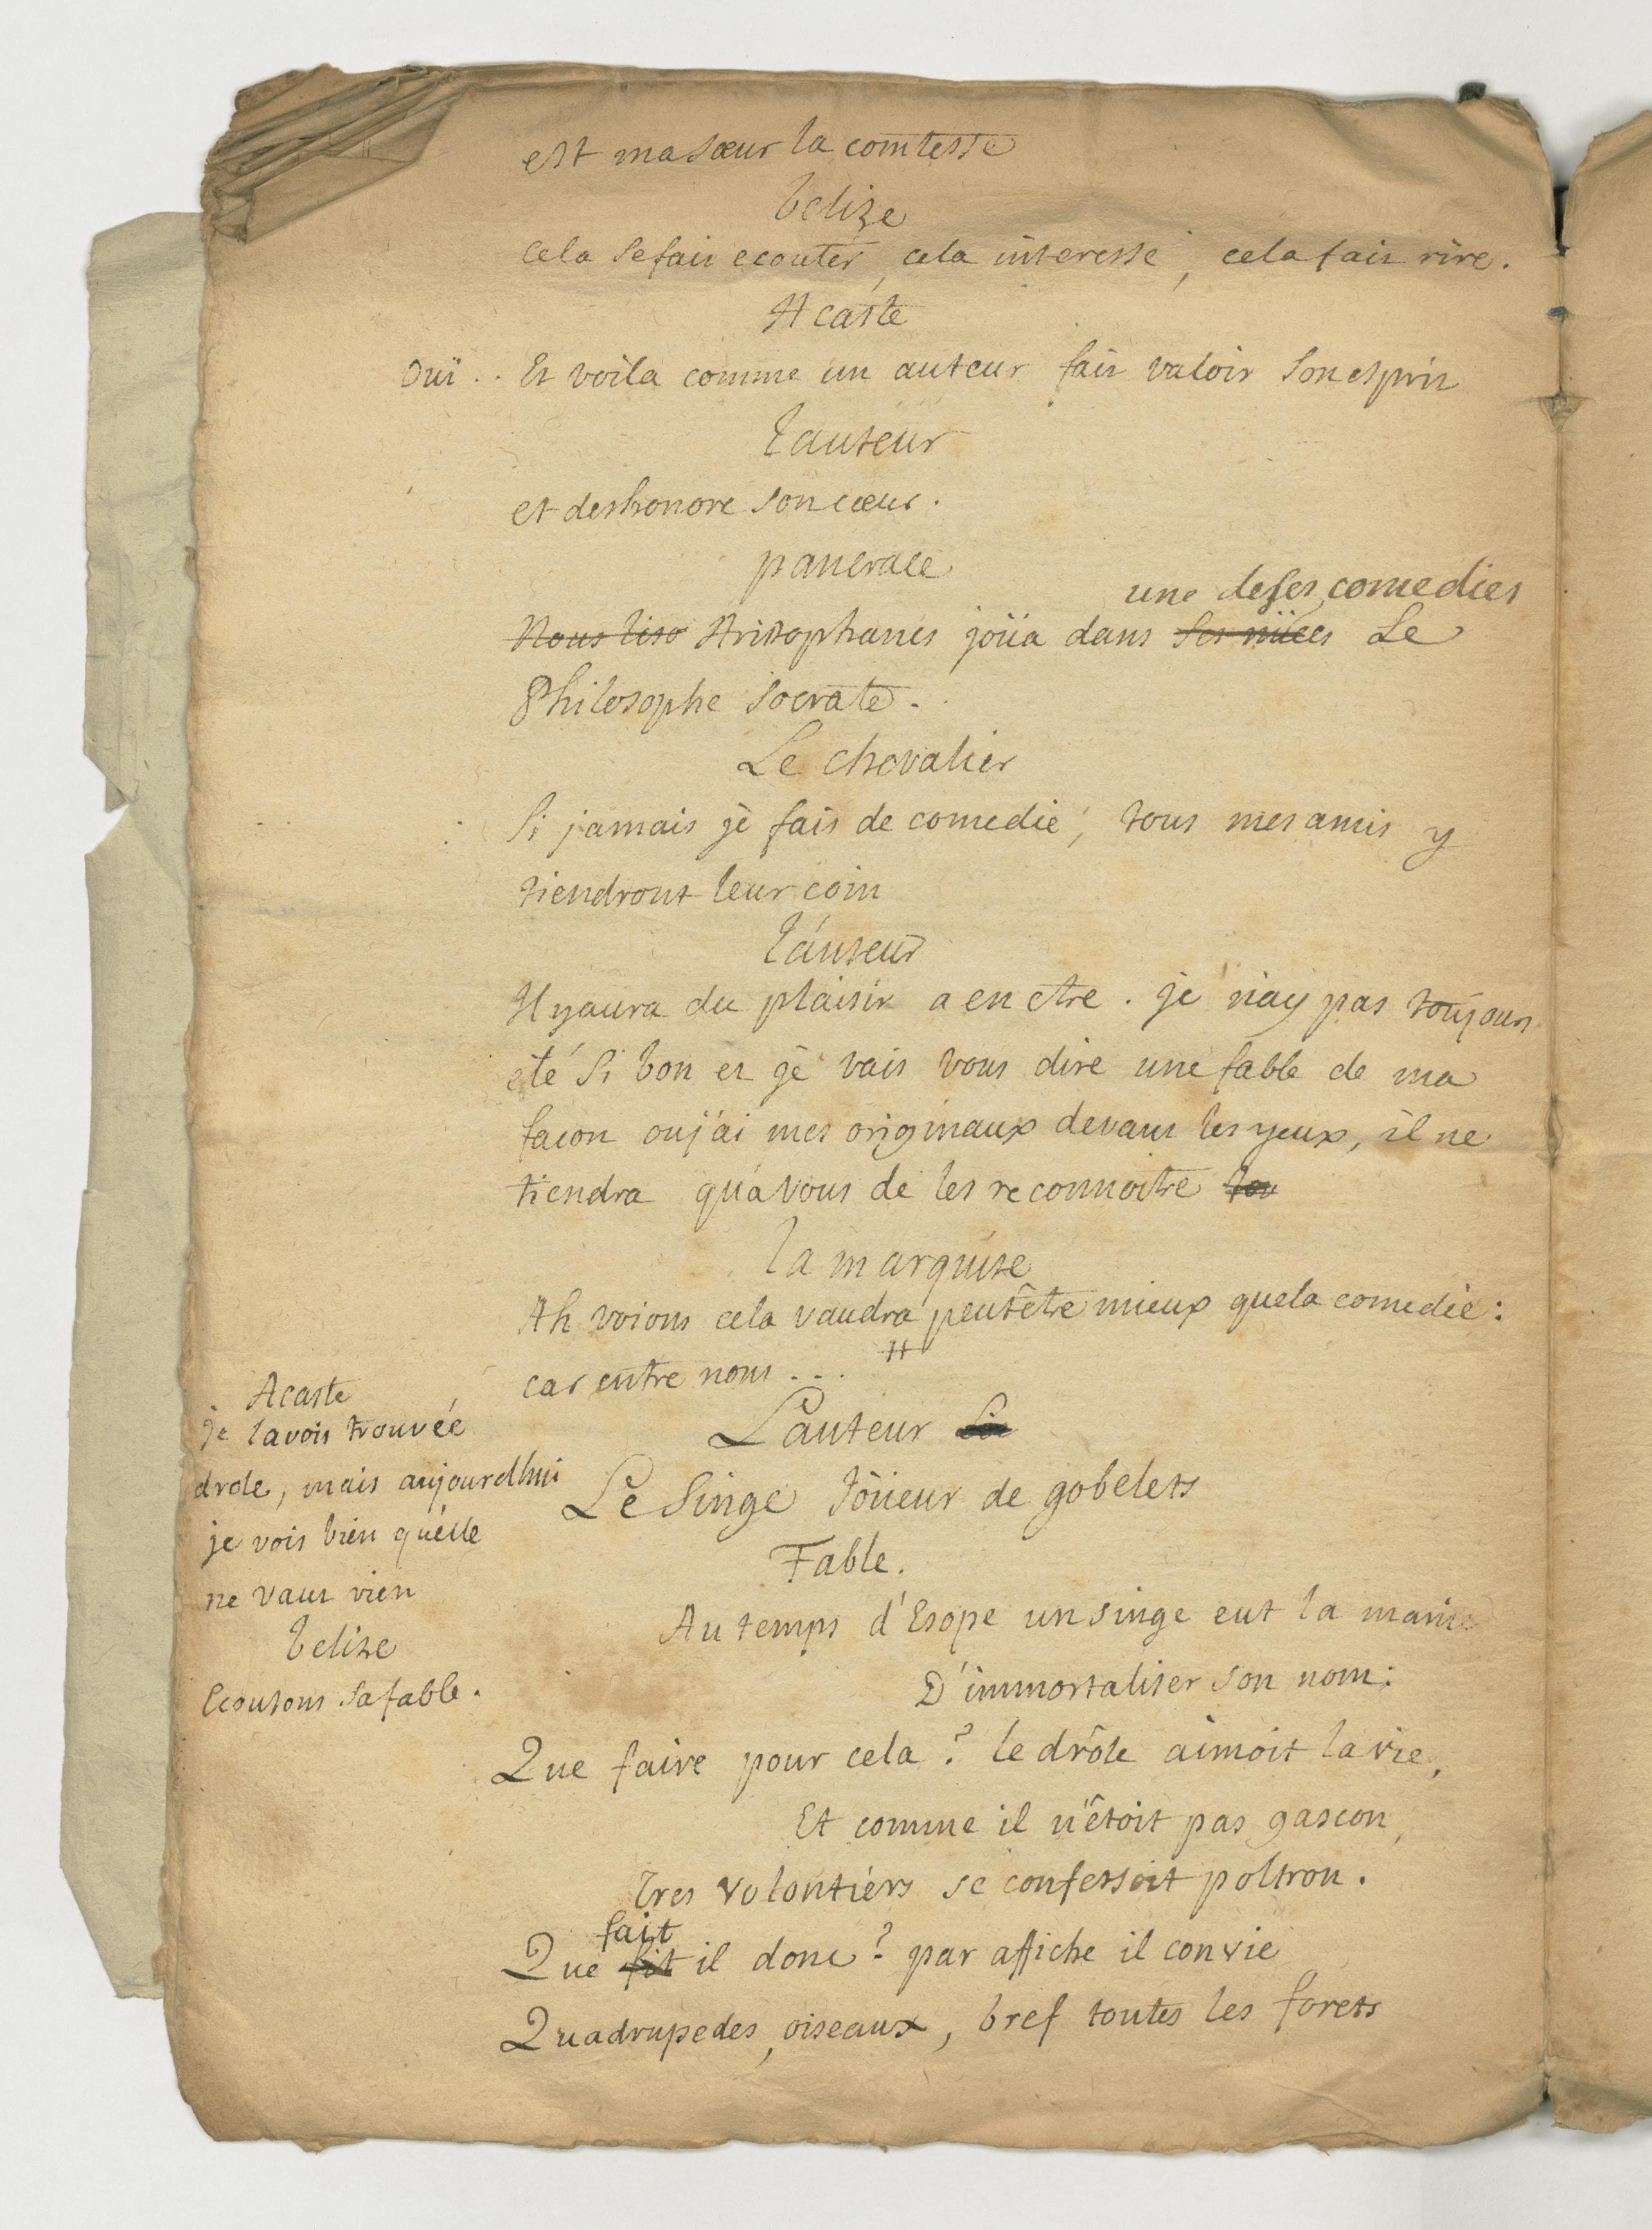 est ma sœur la comtesse
belize
cela se fait ecouter, cela interesse, cela fait rire.
Acaste
Oui .. Et voila comme un auteur fait valoir son esprit
l'auteur
et deshonore son cœur.
pancrace
une de ses comedies
Nous liso Aristophanes joüa dans ses nüees Le
Philosophe Socrate.
Le chevalier
Si jamais je fais de comedie, tous mes amis y
tiendront leur coin
l'auteur
Il y aura du plaisir a en etre. je n'ay pas toujours
eté si bon et je vais vous dire une fable de ma
facon ou j'ai mes originaux devant les yeux, il ne
tiendra qu'a vous de les reconnoitre tou
la marquise
Ah voions cela vaudra peutêtre mieux que la comedie:
car entre nous ... #
L'auteur
Acaste
je l'avois trouvée
drole, mais aujourdhui
je vois bien qu'elle
ne vaut rien
belize
Ecoutons sa fable.
Le Singe Joüeur de gobelets
Fable.
Au temps d'Esope un singe eut la manie
D'immortaliser son nom:
Que faire pour cela? le drôle aimoit la vie,
Et comme il n'êtoit pas gascon,
Tres volontiers se confessoit poltron.
fait
Que fit il donc? par affiche il convie
Quadrupedes, oiseaux, bref toutes les forets